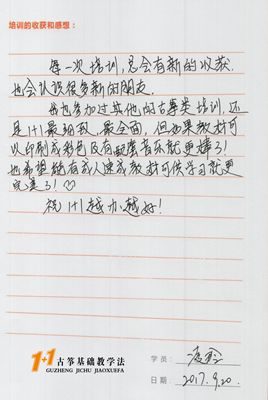 培训的收获和感想：
每一次培训，总会有新的收获，
也会认识很多新的朋友。
我也参加过其他的古筝类培训，还
是1+1最细致，最全面，但如果教材可
以印刷成彩色及有配套音乐就更棒了！
也希望能有成人速成教材可供学习就更
完美了！
祝1+1越办越好！
1+1 古筝基础教学法
GUZHENG JICHU JIAOXUEFA
学员：
日期：2017.9.20.